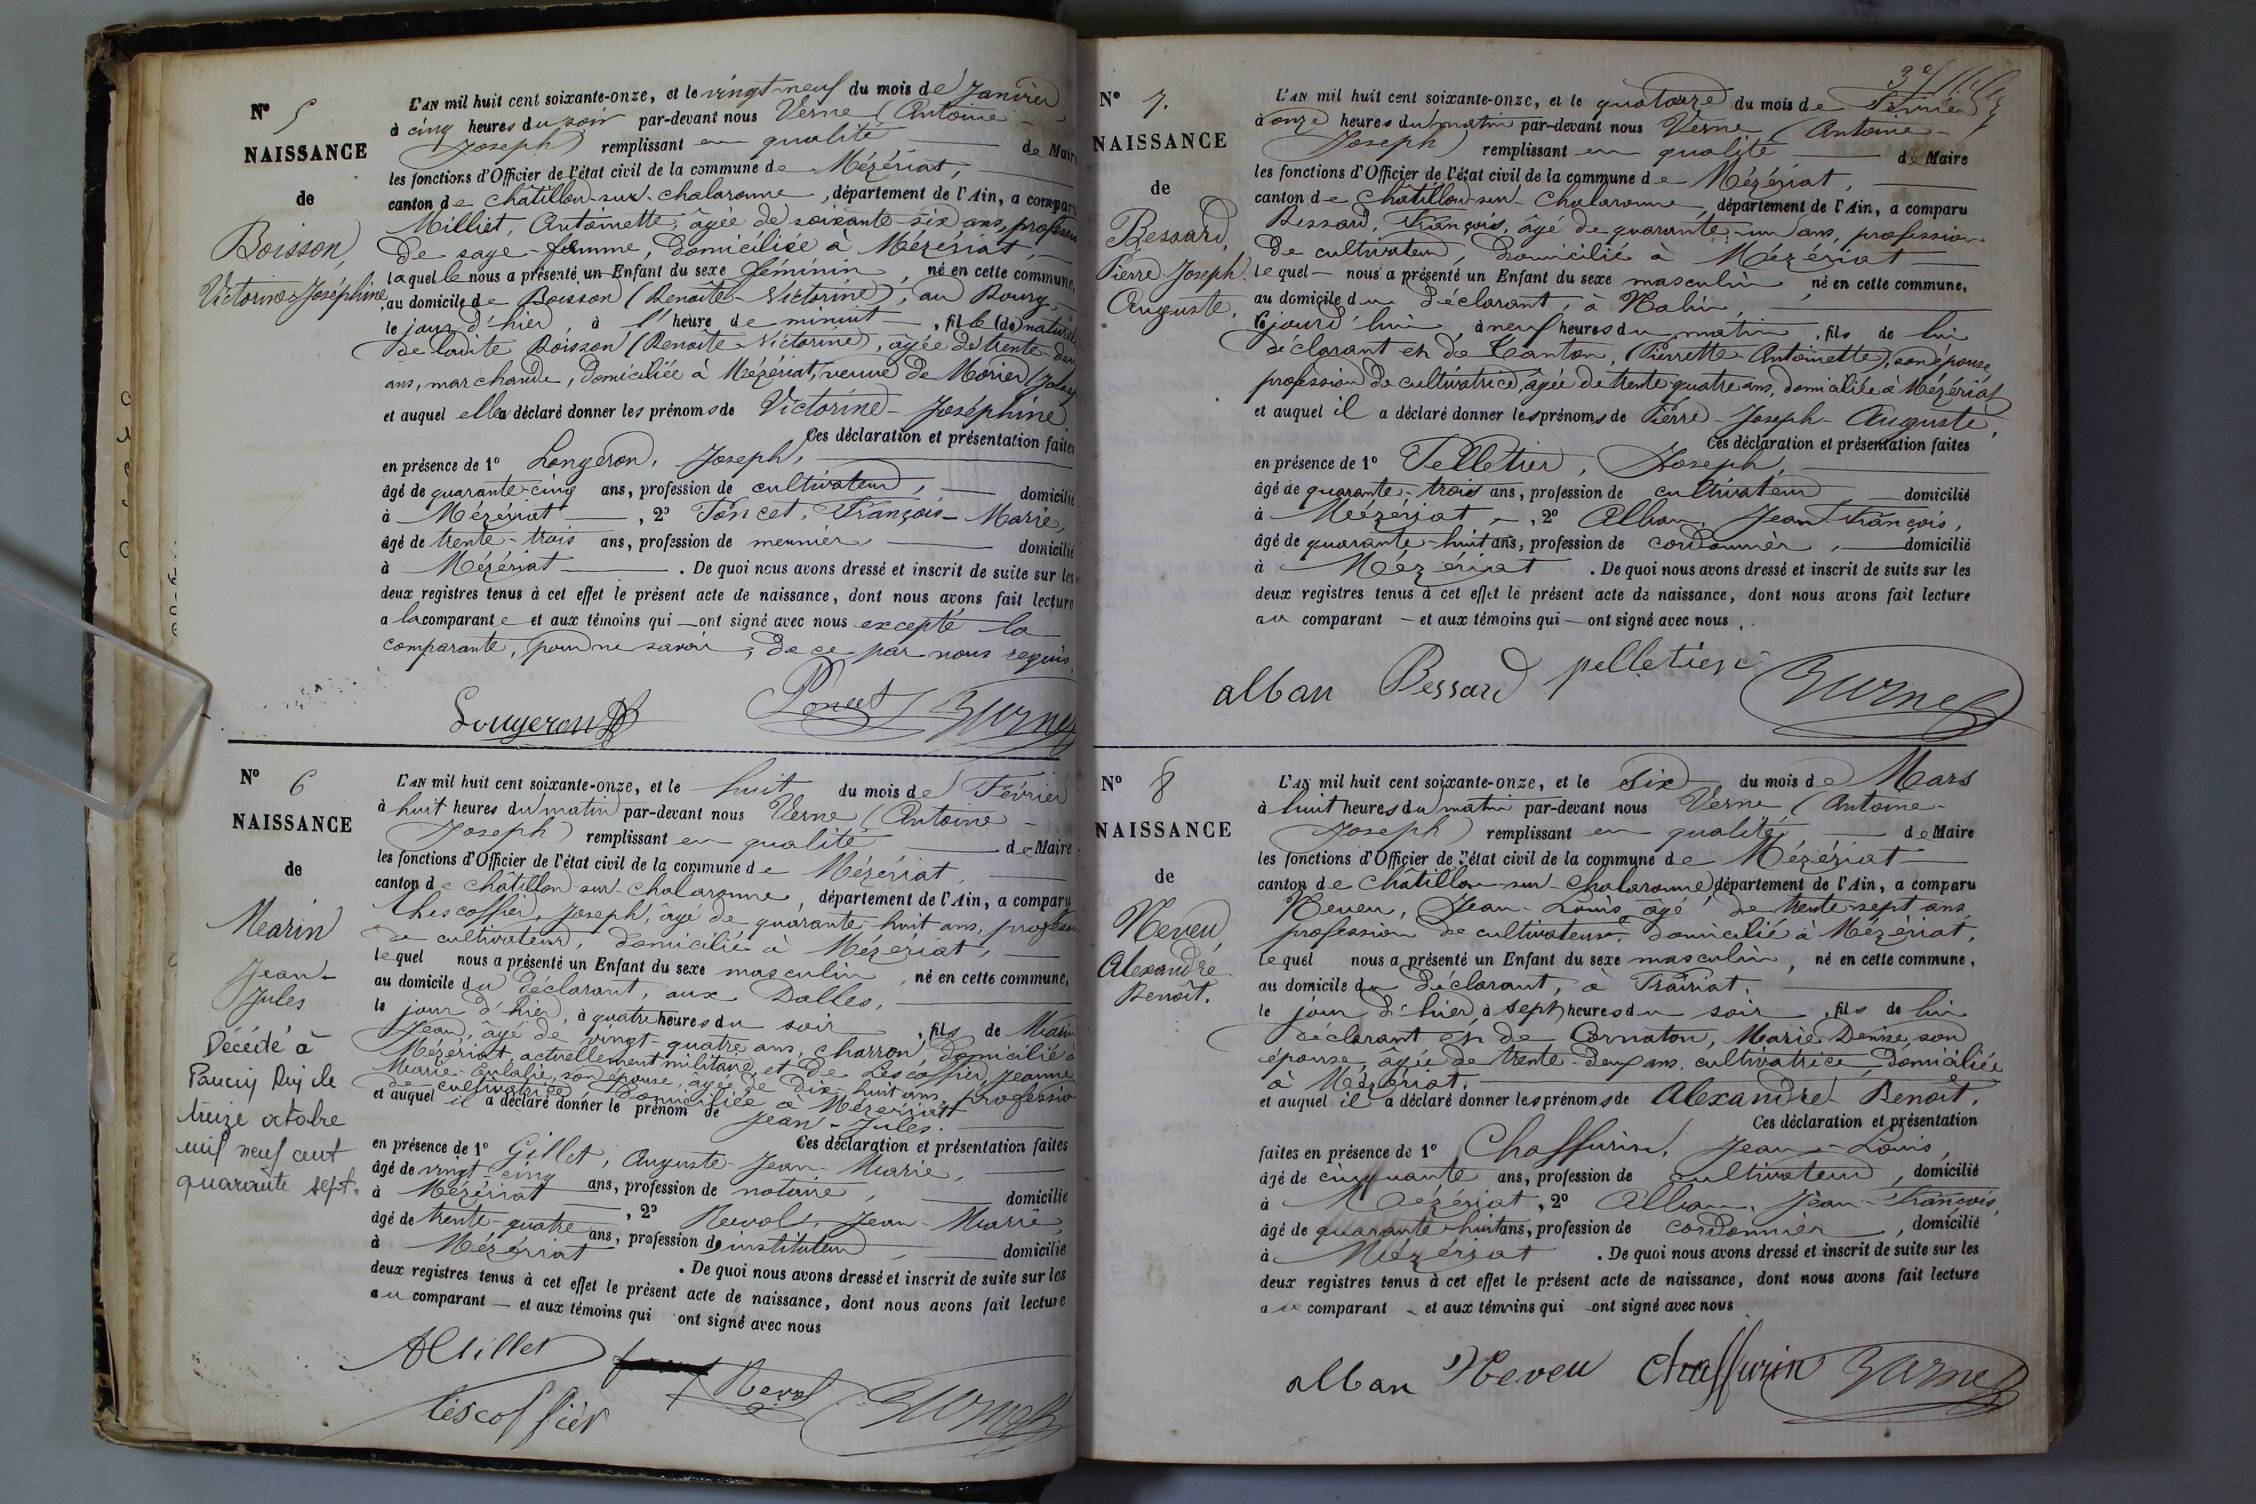 N° 5
NAISSANCE
de
Boisson,
Victorine-Joséphine
L'AN mil huit cent soixante-onze, et le vingt-neuf du mois de Janvier
à cinq heures du soir par-devant nous Verne (Antoine-
Joseph) remplissant en qualité de Maire
les fonctions d'Officier de l'état civil de la commune de Mézériat,
canton de Châtillon-sur-Chalaronne, département de l'Ain, a comparu
Milliet, Antoinette, âgée de soixante-six ans, profession
de sage-femme, domiciliée à Mézériat,
laquelle nous a présenté un Enfant du sexe féminin, né en cette commune,
au domicile de Boisson (Benoîte-Victorine), au Bourg,
le jour d'hier, à l'heure de minuit, fille (de) naturelle
de ladite Boisson (Benoîte-Victorine), âgée de trente-deux
ans, marchande, domiciliée à Mézériat, veuve de Morier
et auquel elle a déclaré donner les prénoms de Victorine-Joséphine.
Ces déclaration et présentation faites
en présence de 1° Longeron, Joseph,
âgé de quarante-cinq ans, profession de cultivateur, domicilié
à Mézériat, 2° Poncet, François-Marie,
âgé de trente-trois ans, profession de meunier domicilié
à Mézériat. De quoi nous avons dressé et inscrit de suite sur les
deux registres tenus à cet effet le présent acte de naissance, dont nous avons fait lecture
a la comparante et aux témoins qui ont signé avec nous excepté la
comparante, pour ne savoir, de ce par nous requis.
Lougeron Poncet Verne
N° 6
NAISSANCE
de
Marin
Jean-
Jules
Décédé à
le
treize octobre
mil neuf cent
quarante sept.
L'AN mil huit cent soixante-onze, et le huit du mois de Février
à huit heures du matin par-devant nous Verne (Antoine-
Joseph) remplissant en qualité de Maire
les fonctions d'Officier de l'état civil de la commune de Mézériat,
canton de Châtillon-sur-Chalaronne, département de l'Ain, a comparu
Lescoffier, Joseph, âgé de quarante-huit ans, profession
de cultivateur, domicilié à Mézériat,
lequel nous a présenté un Enfant du sexe masculin, né en cette commune,
au domicile du déclarant, aux Dalles,
le jour d'hier, à quatre heures du soir, fils de Marin
Jean, âgé de vingt-quatre ans, charron, domicilié à
Mézériat, actuellement militaire, et de Lescoffier, Jeanne
Marie-Eulalie, son épouse, âgée de dix-huit ans, profession
de cultivatrice, domiciliée à Mézériat
et auquel il a déclaré donner le prénom de Jean-Jules.
Ces déclaration et présentation faites
en présence de 1° Gillet, Auguste-Jean-Marie,
âgé de vingt-cinq ans, profession de notaire, domicilié
à Mézériat, 2° Revol, Jean-Marie,
âgé de trente-quatre ans, profession de instituteur, domicilié
à Mézériat. De quoi nous avons dressé et inscrit de suite sur les
deux registres tenus à cet effet le présent acte de naissance, dont nous avons fait lecture
au comparant et aux témoins qui ont signé avec nous
AGillet Revol Verne
Lescoffier
N° 7.
NAISSANCE
de
Bessard,
Pierre-Joseph-
Auguste.
L'AN mil huit cent soixante-onze, et le quatorze du mois de Février
à onze heures du matin par-devant nous Verne (Antoine-
Joseph) remplissant en qualité de Maire
les fonctions d'Officier de l'état civil de la commune de Mézériat,
canton de Châtillon-sur-Chalaronne, département de l'Ain, a comparu
Bessard, François, âgé de quarante-un ans, profession
de cultivateur, domicilié à Mézériat
lequel nous a présenté un Enfant du sexe masculin, né en cette commune,
au domicile du déclarant, à
cejourd'hui, à neuf heures du matin, fils de lui
déclarant et de Canton, (Pierrette-Antoinette), son épouse,
profession de cultivatrice, âgée de trente-quatre ans, domiciliée à Mézériat
et auquel il a déclaré donner les prénoms de Pierre-Joseph-Auguste.
Ces déclaration et présentation faites
en présence de 1° Pelletier, Joseph,
âgé de quarante-trois ans, profession de cultivateur, domicilié
à Mézériat, 2° Alban, Jean-François,
âgé de quarante-huit ans, profession de cordonnier, domicilié
à Mézériat. De quoi nous avons dressé et inscrit de suite sur les
deux registres tenus à cet effet le présent acte de naissance, dont nous avons fait lecture
au comparant et aux témoins qui ont signé avec nous.
alban Bessard pelletier Verne
N° 8
NAISSANCE
de
Neveu,
Alexandre
Benoît.
L'AN mil huit cent soixante-onze, et le Six du mois de Mars
à huit heures du matin par-devant nous Verne (Antoine-
Joseph) remplissant en qualité de Maire
les fonctions d'Officier de l'état civil de la commune de Mézériat
canton de Châtillon-sur-Chalaronne, département de l'Ain, a comparu
Neveu, Jean-Louis, âgé de trente-sept ans,
profession de cultivateur, domicilié à Mézériat,
lequel nous a présenté un Enfant du sexe masculin, né en cette commune,
au domicile du déclarant, à Trairiat,
le jour d'hier, à sept heures du soir, fils de lui
déclarant et de Cornaton, Marie-Denise, son
épouse, âgée de trente-deux ans, cultivatrice, domiciliée
à Mézériat.
et auquel il a déclaré donner les prénoms de Alexandre-Benoît.
Ces déclaration et présentation
faites en présence de 1° Chaffurin, Jean-Louis,
âgé de cinquante ans, profession de cultivateur, domicilié
à Mézériat, 2° Alban, Jean-François,
âgé de quarante-huit ans, profession de cordonnier, domicilié
à Mézériat. De quoi nous avons dressé et inscrit de suite sur les
deux registres tenus à cet effet le présent acte de naissance, dont nous avons fait lecture
au comparant et aux témoins qui ont signé avec nous
alban Neveu Chaffurin Verne